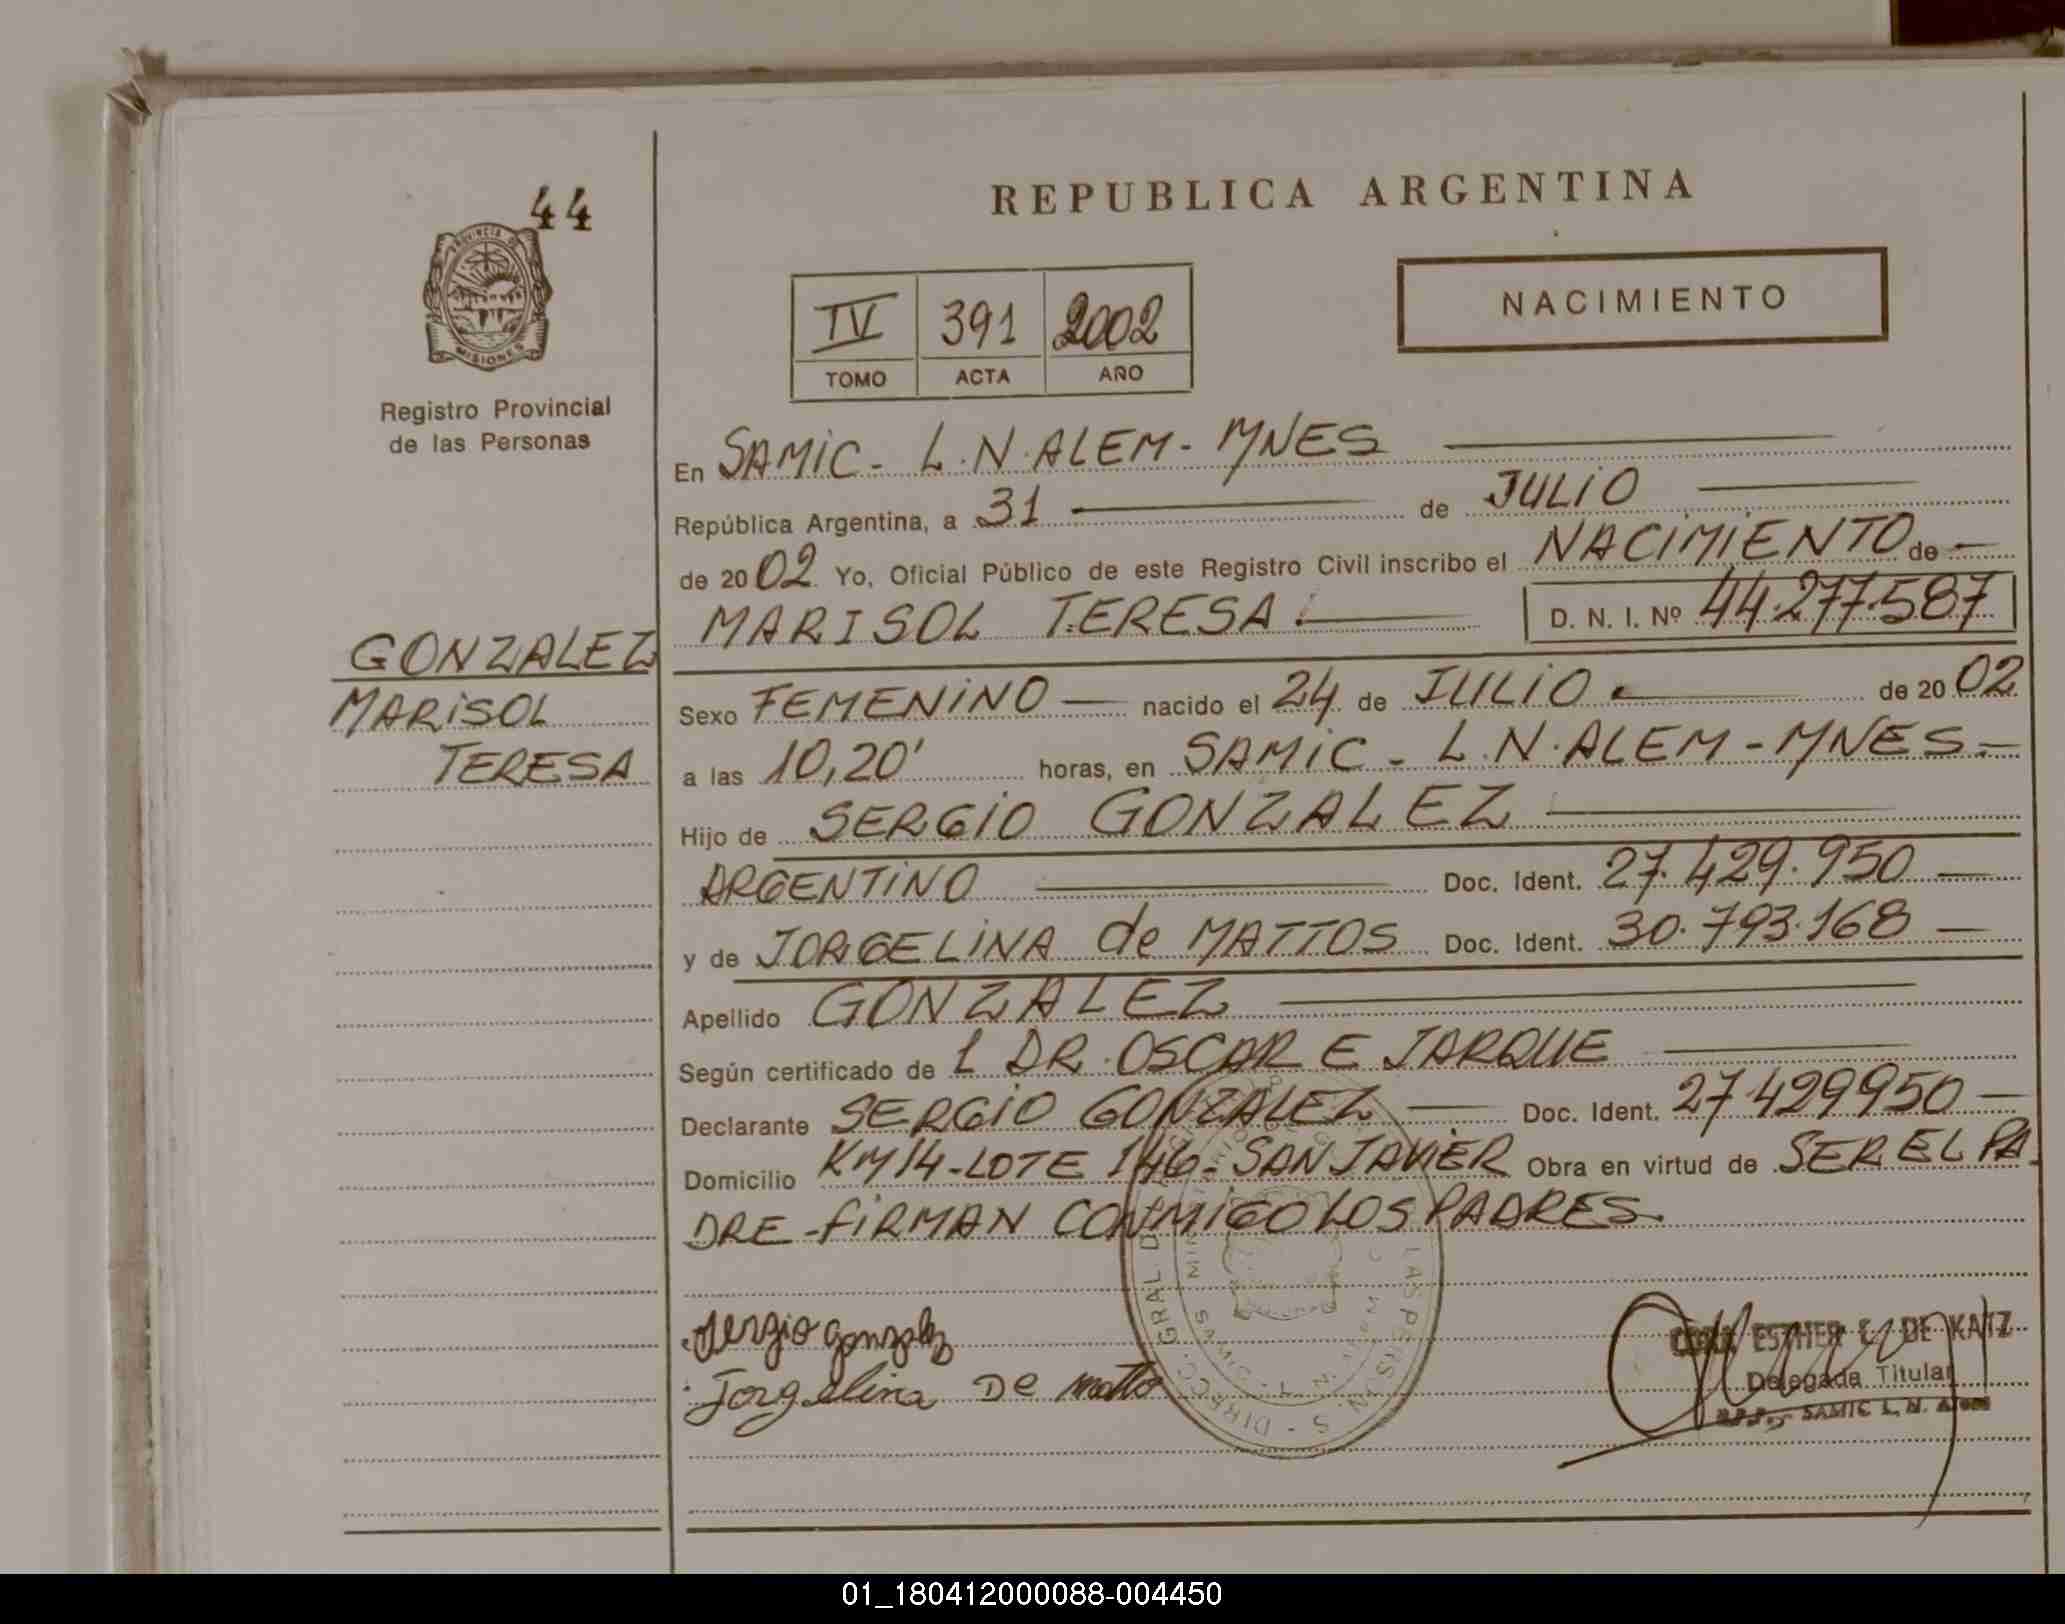 44
PROVINCIA DE
MISIONES
Registro Provincial
de las Personas
GONZALEZ
MARISOL
TERESA
REPUBLICA ARGENTINA
NACIMIENTO
IV 391 2002
TOMO ACTA AÑO
En SAMIC - L.N.ALEM - MNES
República Argentina, a 31 de JULIO
de 2002 Yo, Oficial Público de este Registro Civil inscribo el NACIMIENTO de
MARISOL TERESA. D. N. I. Nº 44.277.587
Sexo FEMENINO nacido el 24 de JULIO de 2002
a las 10,20' horas, en SAMIC - L.N.ALEM - MNES.
Hijo de SERGIO GONZALEZ
ARGENTINO Doc. Ident. 27.429.950
y de JORGELINA de MATTOS Doc. Ident. 30.793.168
Apellido GONZALEZ
Según certificado de L DR. OSCAR E JARQUE
Declarante SERGIO GONZALEZ Doc. Ident. 27429950
Domicilio KM14-LOTE 146-SAN JAVIER Obra en virtud de SER EL PA
DRE - FIRMAN CONMIGO LOS PADRES.
sergio gonzalez
Jorgelina De matto
ESTHER E. DE KATZ
Delegada Titular
SAMIC L. N. Alem
01_180412000088-004450